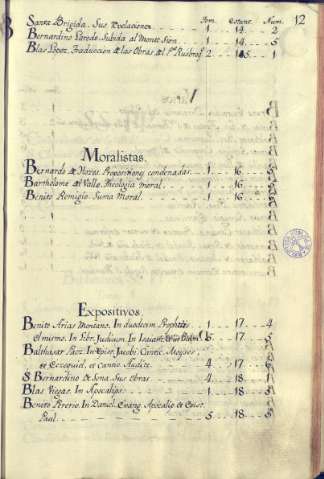 Tom. Estant. Num. 12
Santa Brigida. Sus Revelaciones. 1 14 2
Bernardino Laredo. Subida al Monte Sion. 1 14 5
Blas Lopez. Traduccion de las Obras de Rusbroq 2 1
Moralistas.
Bernardo de Hozes. Proposiciones condenadas. 1 16
Bartholome del Valle. Theologia Moral. 1 16
Benito Remigio. Suma Moral. 1 16
Expositivos
Benito Arias Montano. In duodecim Prophetas 1 17 4
el mismo. In Libr. Judicum. In Isaiam 5 17
Balthasar Paez. In Epist. Jacobi. Cantic. Moyses
de Ezequiel, et Cantic. Audite 4 17
S. Bernardino de Sena. Sus Obras 4 18 1
Blas Viegas. In Apocalips. 1 18
Benito Pererio. In Daniel. Evang. Apocalip. et Epist.
Paul. 5 18 5